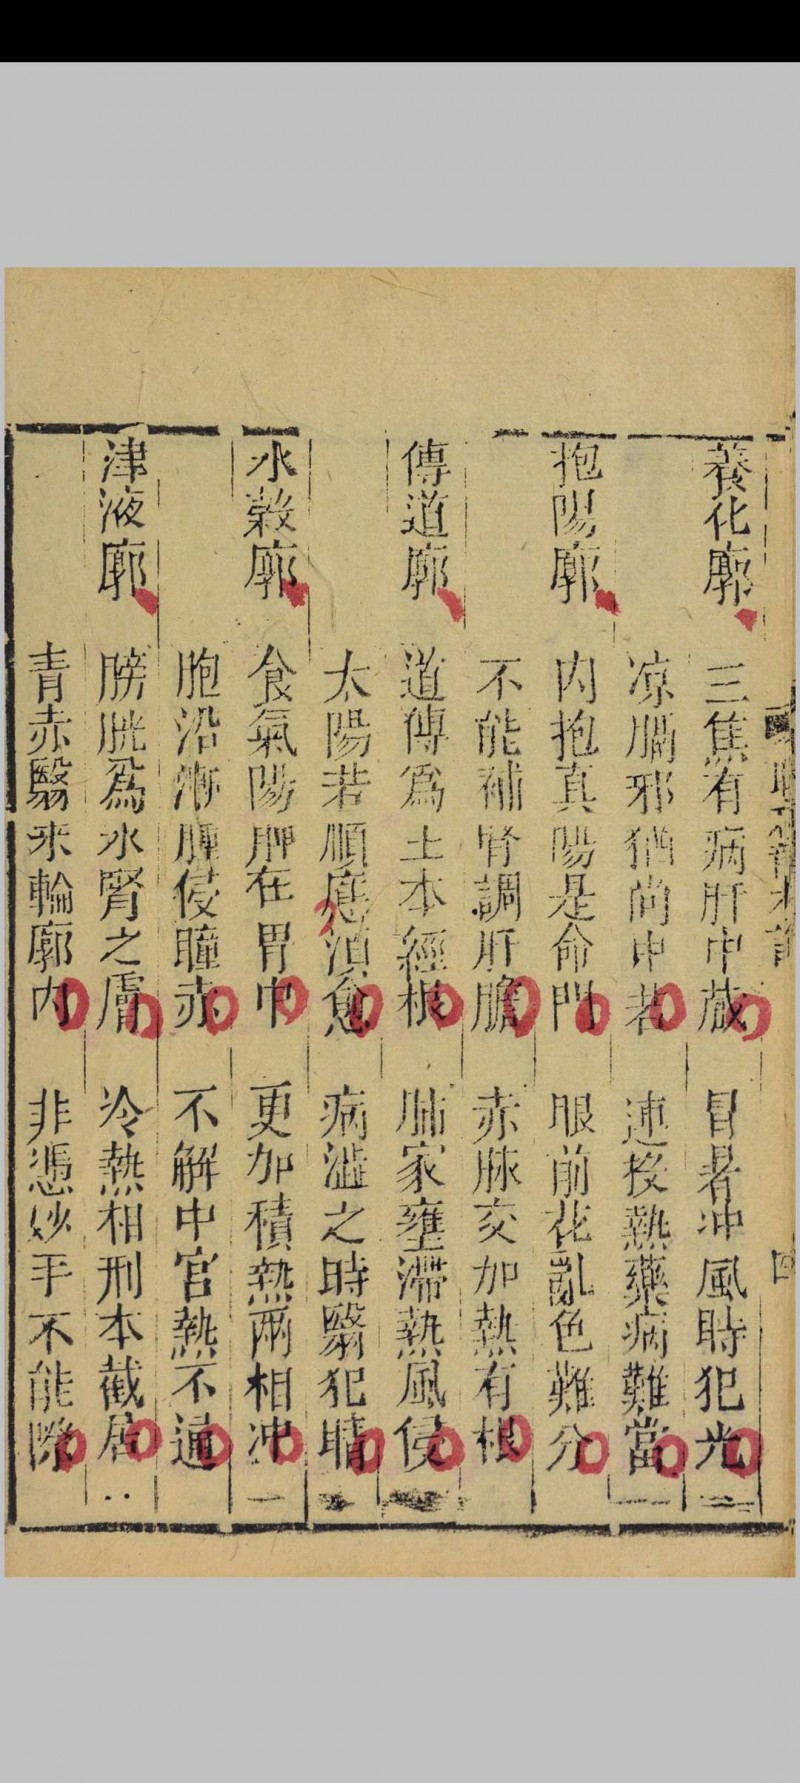 養化廓 三焦有病肝中藏 冒暑冲風時犯光
凉膈邪猶尚中若 連投熱藥病難當
抱陽廓 内抱真陽是命門 眼前花亂色難分
不能補腎調肝膽 赤脉交加熱有根
傳道廓 道傳爲土本經根 肺家壅滯熱風侵
太陽若順應須愈 病澁之時翳犯睛
水穀廓 食氣陽脾在胃中 更加積熱兩相冲
胞沿漸腫侵瞳赤 不解中官熱不通
津液廓 膀胱爲水腎之膚 冷熱相刑本截居
青赤翳來輪廓内 非憑妙手不能除
四